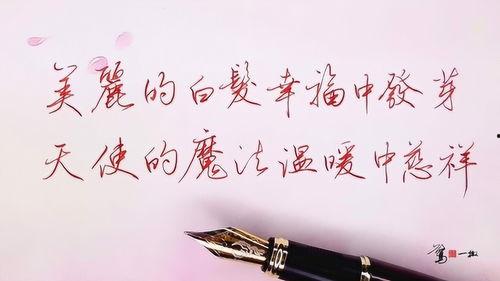 美麗的白髮幸福中發芽
天使的魔法溫暖中慈祥